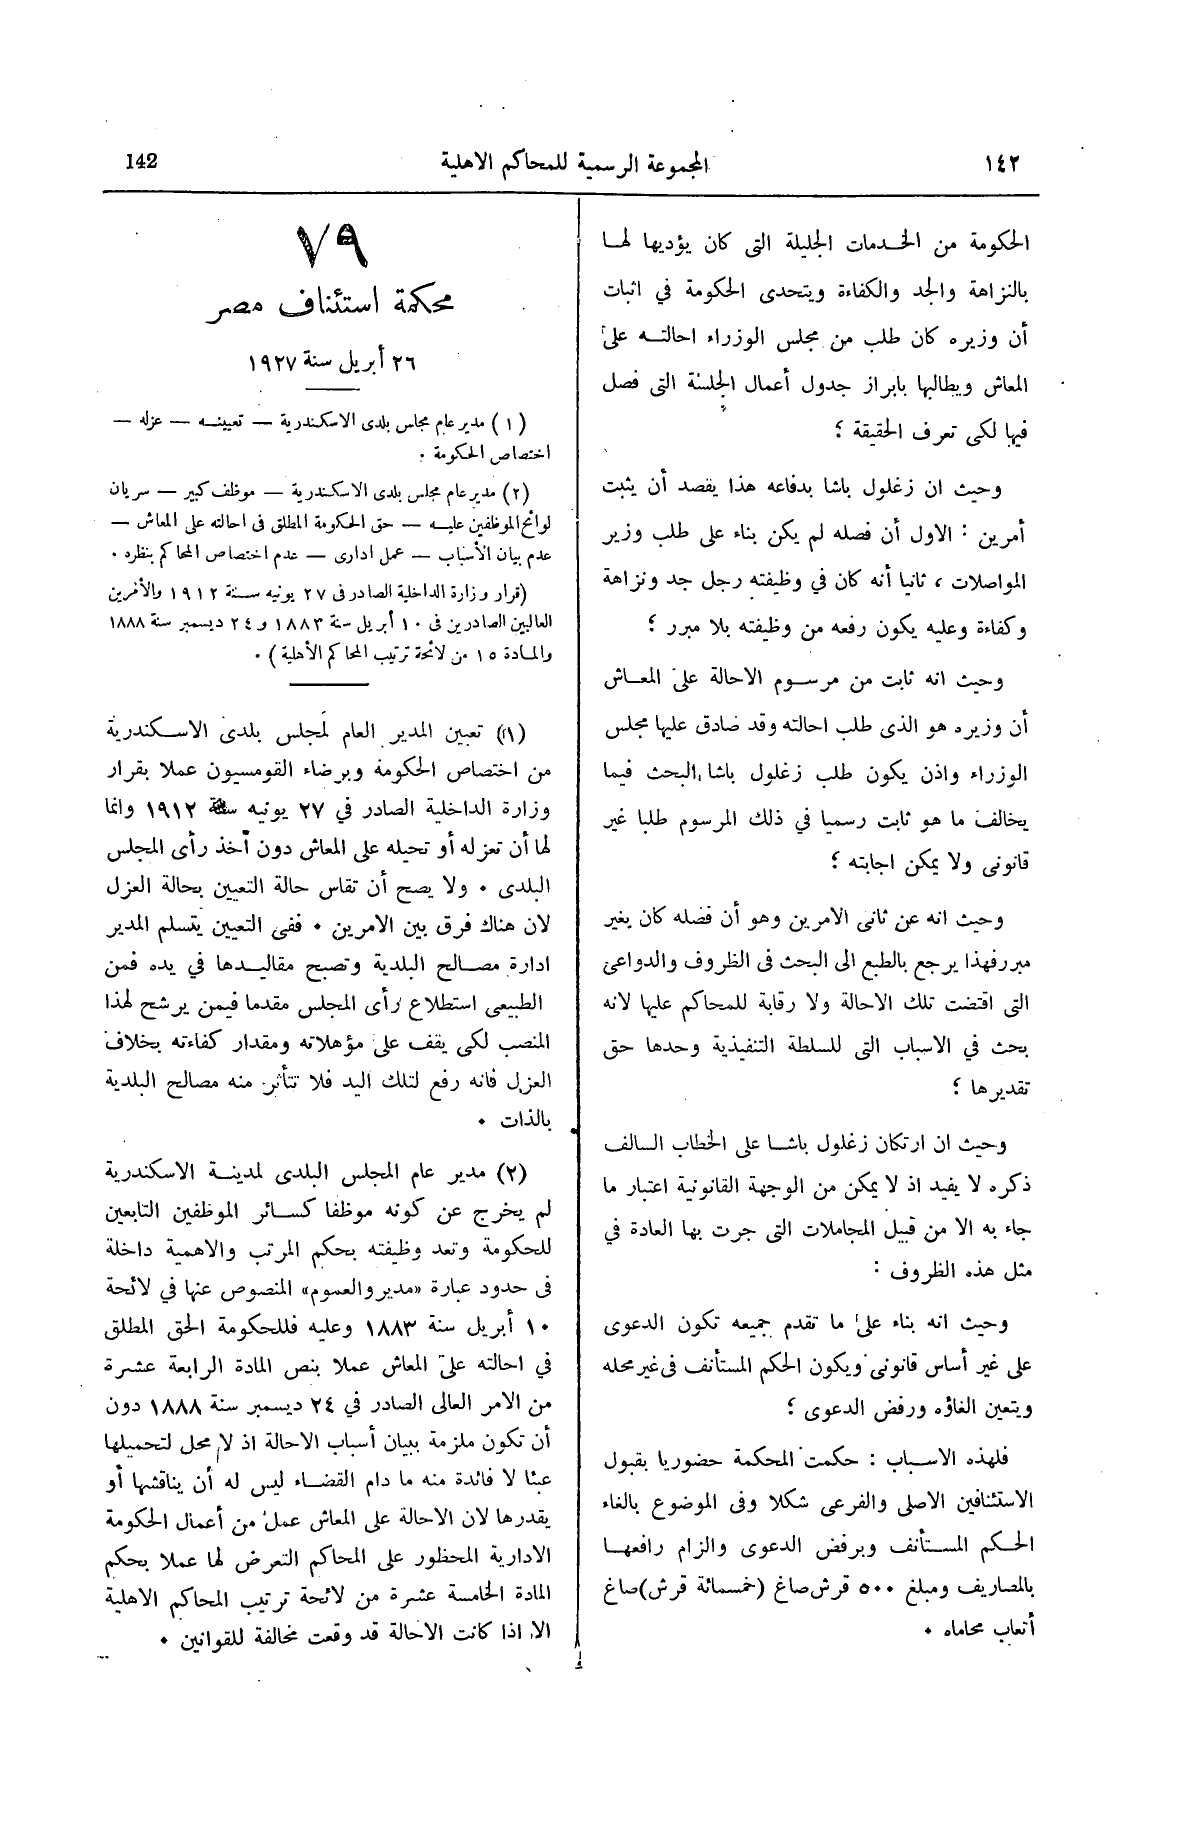 ١٤٢ المجموعة الرسمية للمحاكم الاهلية 142
الحكومة من الخدمات الجليلة التى كان يؤديها لها
بالنزاهة والجد والكفاءة ويتحدى الحكومة في اثبات
أن وزيره كان طلب من مجلس الوزراء احالته على
المعاش ويطالبها بابراز جدول أعمال الجلسة التى فصل
فيها لكى تعرف الحقيقة ؟
وحيث ان زغلول باشا بدفاعه هذا يقصد أن يثبت
أمرين : الاول أن فصله لم يكن بناء على طلب وزير
المواصلات ، ثانيا أنه كان في وظيفته رجل جد ونزاهة
وكفاءة وعليه يكون رفعه من وظيفته بلا مبرر ؟
وحيث انه ثابت من مرسوم الاحالة على المعاش
أن وزيره هو الذى طلب احالته وقد صادق عليها مجلس
الوزراء واذن يكون طلب زغلول باشا البحث فيما
يخالف ما هو ثابت رسميا في ذلك المرسوم طلبا غير
قانونى ولا يمكن اجابته ؟
وحيث انه عن ثانى الامرين وهو أن فصله كان بغير
مبرر فهذا يرجع بالطبع الى البحث فى الظروف والدواعى
التى اقتضت تلك الاحالة ولا رقابة للمحاكم عليها لانه
بحث في الاسباب التى للسلطة التنفيذية وحدها حق
تقديرها ؟
وحيث ان ارتكان زغلول باشا على الخطاب السالف
ذكره لا يفيد اذ لا يمكن من الوجهة القانونية اعتبار ما
جاء به الا من قبيل المجاملات التى جرت بها العادة في
مثل هذه الظروف :
وحيث انه بناء على ما تقدم جميعه تكون الدعوى
على غير أساس قانونى ويكون الحكم المستأنف فى غير محله
ويتعين الغاؤه ورفض الدعوى ؟
فلهذه الاسباب : حكمت المحكمة حضوريا بقبول
الاستئنافين الاصلى والفرعى شكلا وفى الموضوع بالغاء
الحكم المستأنف وبرفض الدعوى والزام رافعها
بالمصاريف ومبلغ ٥٠٠ قرش صاغ (خمسمائة قرش) صاغ
أتعاب محاماه ٠
٧٩
محكمة استئناف مصر
٢٦ أبريل سنة ١٩٢٧
(١) مدير عام مجلس بلدى الاسكندرية — تعيينه — عزله —
اختصاص الحكومة ٠
(٢) مدير عام مجلس بلدى الاسكندرية — موظف كبير — سريان
لوائح الموظفين عليه — حق الحكومة المطلق فى احالته على المعاش —
عدم بيان الأسباب — عمل ادارى — عدم اختصاص المحاكم بنظره ٠
(قرار وزارة الداخلية الصادر فى ٢٧ يونيه سنة ١٩١٢ والأمرين
العاليين الصادرين فى ١٠ أبريل سنة ١٨٨٣ و ٢٤ ديسمبر سنة ١٨٨٨
والمادة ١٥ من لائحة ترتيب المحاكم الأهلية) ٠
(١) تعيين المدير العام لمجلس بلدى الاسكندرية
من اختصاص الحكومة وبرضاء القومسيون عملا بقرار
وزارة الداخلية الصادر في ٢٧ يونيه سنة ١٩١٢ وانما
لها أن تعزله أو تحيله على المعاش دون أخذ رأى المجلس
البلدى ٠ ولا يصح أن تقاس حالة التعيين بحالة العزل
لان هناك فرق بين الامرين ٠ ففى التعيين يتسلم المدير
ادارة مصالح البلدية وتصبح مقاليدها في يده فمن
الطبيعى استطلاع رأى المجلس مقدما فيمن يرشح لهذا
المنصب لكى يقف على مؤهلاته ومقدار كفاءته بخلاف
العزل فانه رفع لتلك اليد فلا تتأثر منه مصالح البلدية
بالذات ٠
(٢) مدير عام المجلس البلدى لمدينة الاسكندرية
لم يخرج عن كونه موظفا كسائر الموظفين التابعين
للحكومة وتعد وظيفته بحكم المرتب والاهمية داخلة
فى حدود عبارة «مديرو العموم» المنصوص عنها في لائحة
١٠ أبريل سنة ١٨٨٣ وعليه فللحكومة الحق المطلق
في احالته على المعاش عملا بنص المادة الرابعة عشرة
من الامر العالى الصادر في ٢٤ ديسمبر سنة ١٨٨٨ دون
أن تكون ملزمة ببيان أسباب الاحالة اذ لا محل لتحميلها
عبئا لا فائدة منه ما دام القضاء ليس له أن يناقشها أو
يقدرها لان الاحالة على المعاش عمل من أعمال الحكومة
الادارية المحظور على المحاكم التعرض لها عملا بحكم
المادة الخامسة عشرة من لائحة ترتيب المحاكم الاهلية
الا اذا كانت الاحالة قد وقعت مخالفة للقوانين ٠